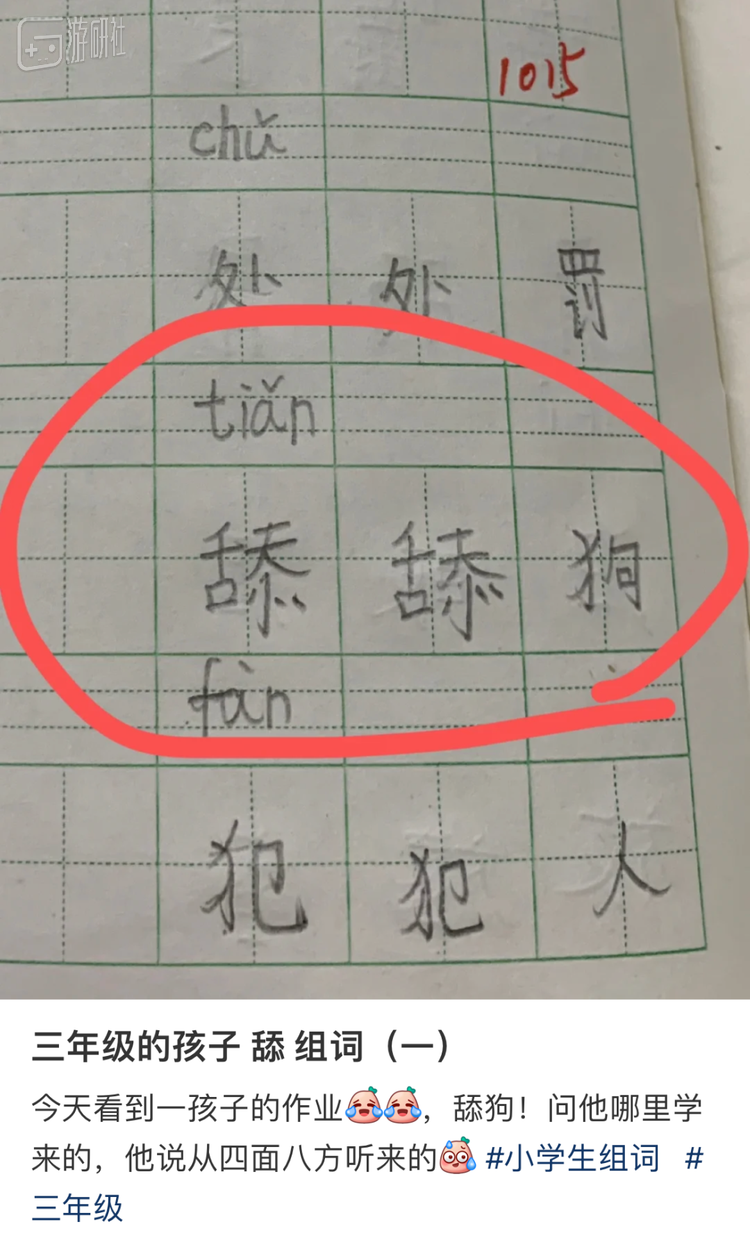 游研社
1015
chǔ
处 处 罚
tiǎn
舔 舔 狗
fàn
犯 犯 人
三年级的孩子 舔 组词（一）
今天看到一孩子的作业，舔狗！问他哪里学
来的，他说从四面八方听来的 #小学生组词 #
三年级